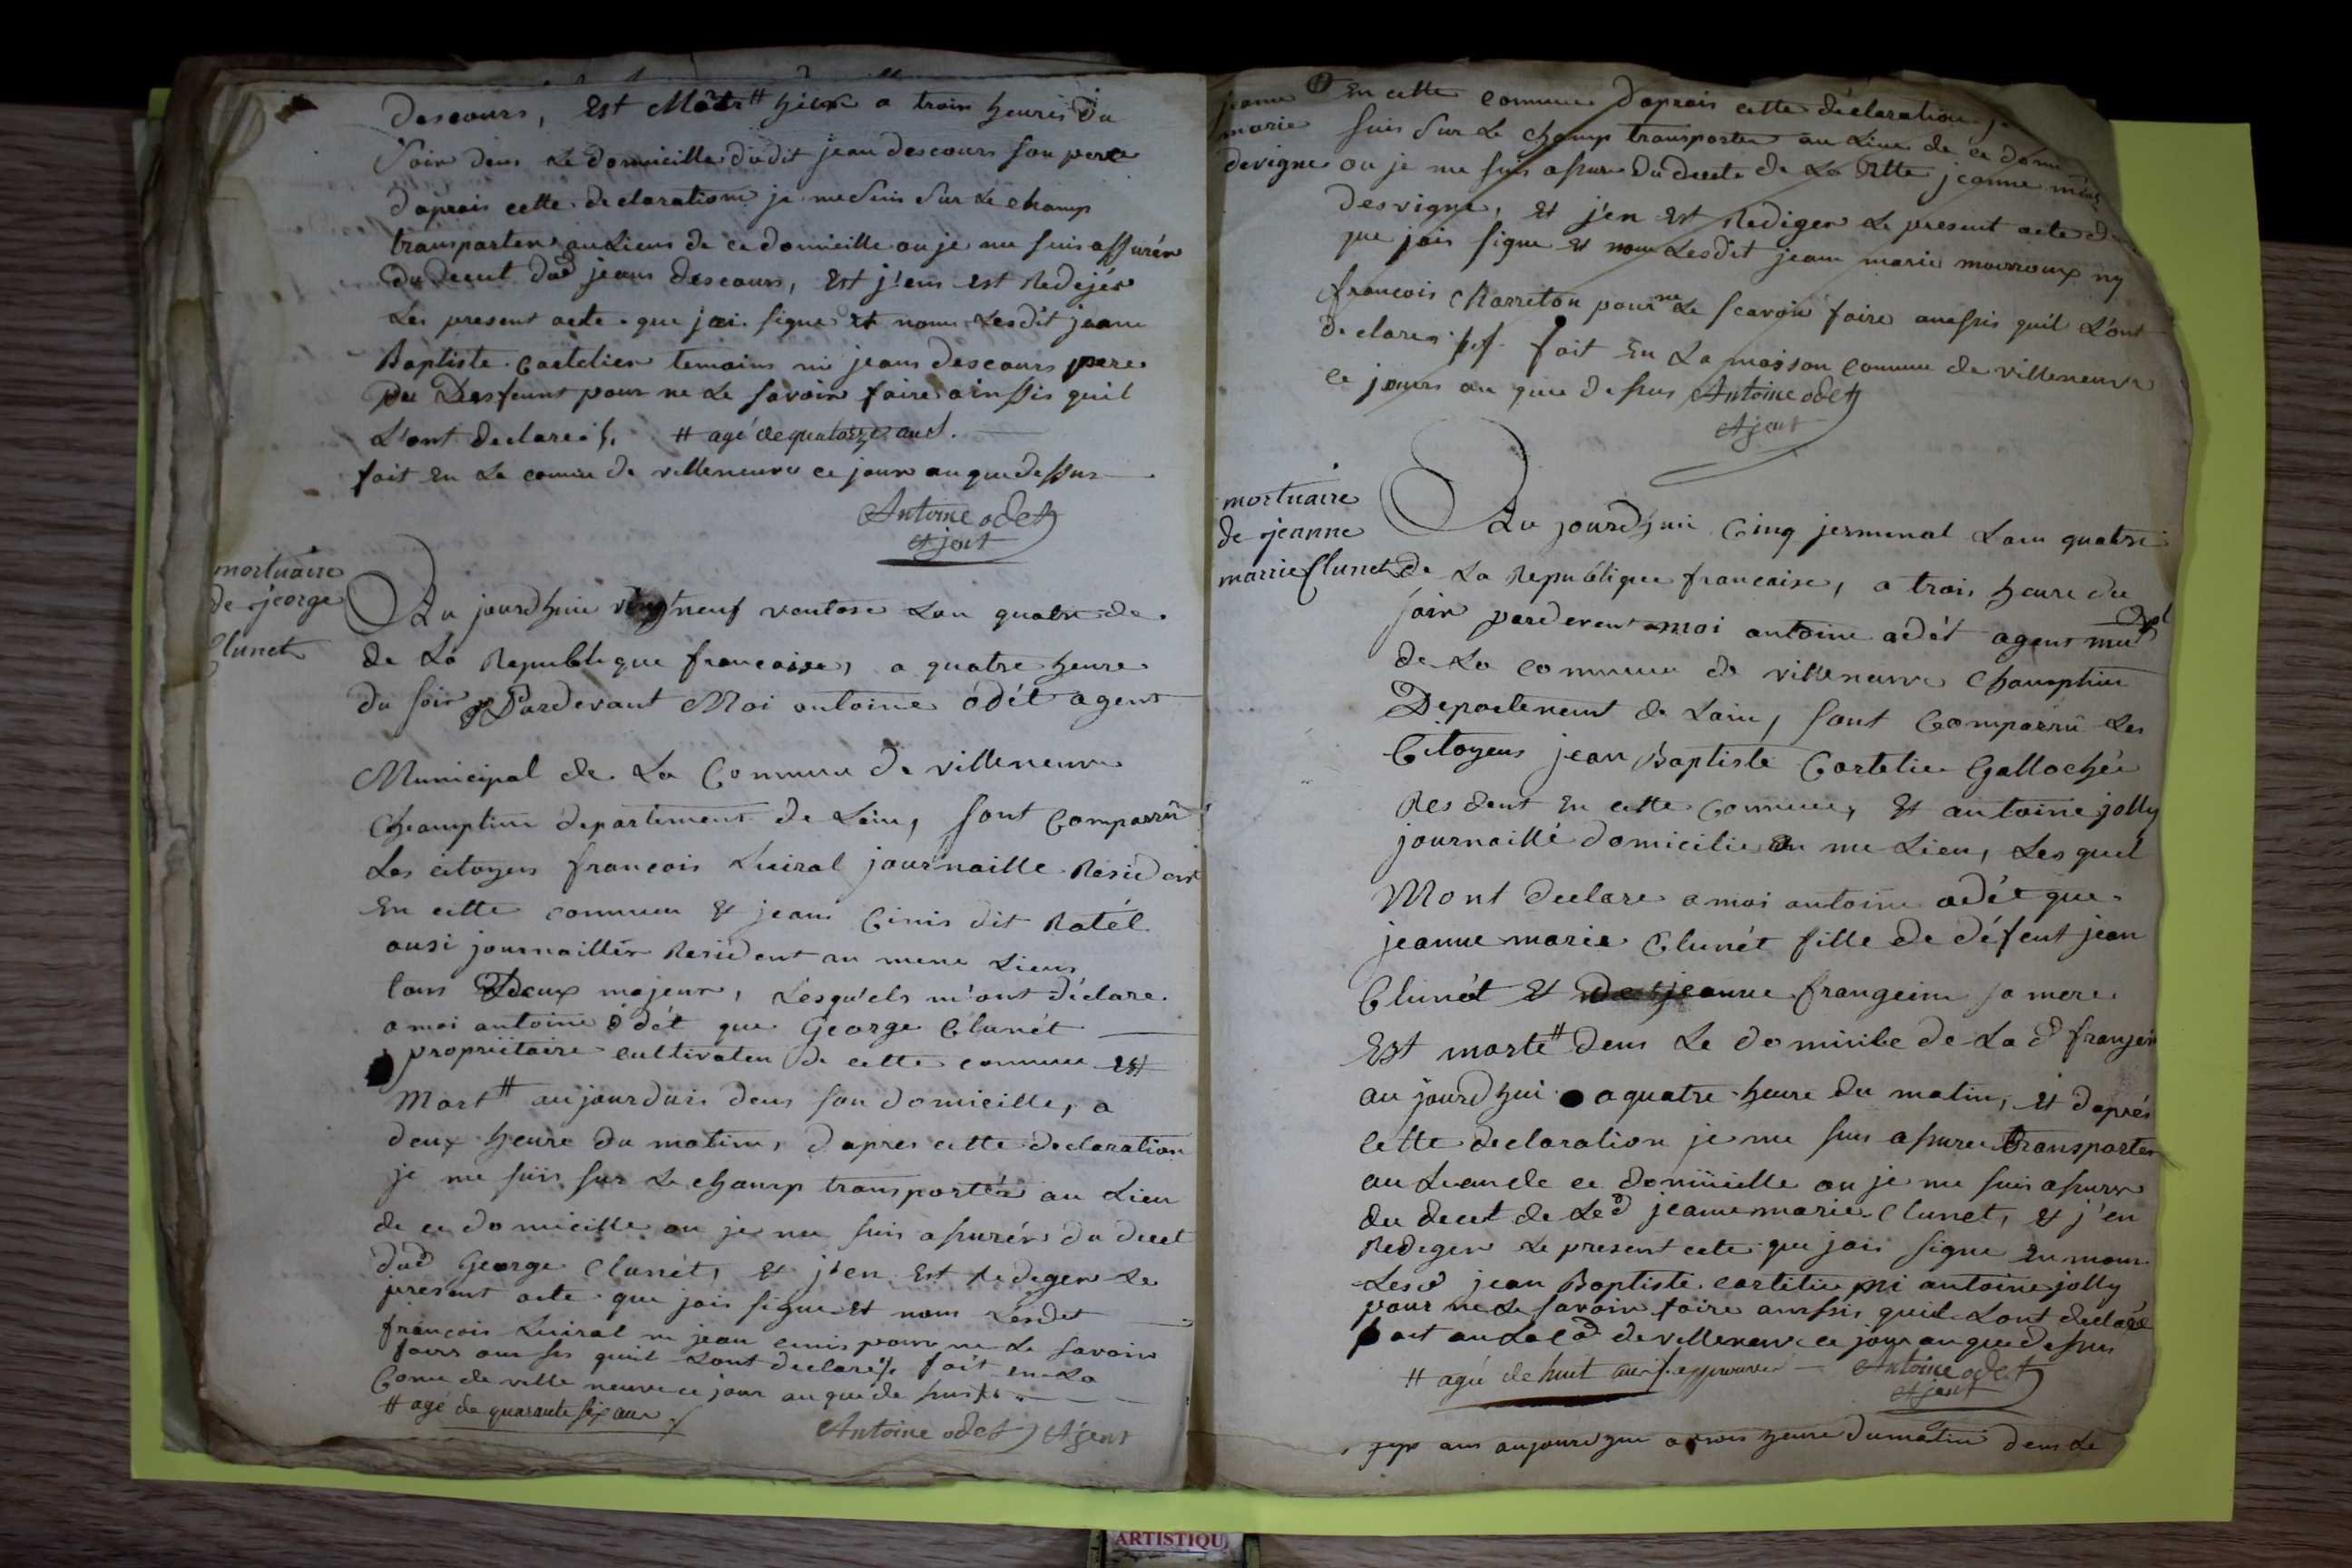 Descours, Est Môrt # hiér a troin heures Du
Soir dens Le domicille dudit jean descours son pere
D'aprais cette declaration je me suis sur Le champ
transporter au Lieus de ce domicille ou je me suis assurér
du decent dud jeans descours, Est j'ens est Redejér
Les present acte que jai signé Et nom Lesdit jeane
Baptiste Cartelier temoins ni jeans descours pere
Du Desfeunt pour ne Le savoir faire ainssis quil
L'ont declareis, # agé de quatorze ans.
fait En La comue de villeneuve ce jour au que dessus
Antoine odet
Ajent
mortuaire
de jeorge
Clunet
Au jourdhuie vingtneuf ventose Lan quatre de
de La Republique francaise, a quatre heure
du soir Pardevant Moi antoine odét agent
Municipal de La Commune de villeneuve
Champtine departement de Lain, sont Comparru
Les citoyens francois Luiral journaille Resident
En cette commune & jean Cinis dit Ratél
ausi journaillér Resident au meme Lieus
tous Deux majeur, Lesqu'els m'ont déclare
a moi antoine ódét que George Clunét
propriétaire cultivateu de cette commune est
Mort # aujourduis dens son domicille, a
deux heure du matins, d'apres cette declaration
je me suis sur Le champ transportér au Lieu
de ce domicille ou je me suis asurér du decet
dud George Clunét, & j'en Est Redeger Le
present acte que jais signe Et nom Lesdit
francois Luiral ni jean cinis pour ne Le savoir
faire aussis quil Lont declaréis fait en La
Comue de ville neuve ce jour au que de sus
# agé de quarante six ans
Antoine odet Ajent
jeanne
marie
devigne
En cette commune D'aprais cette déclaration je
suis sur Le champ transporter au Lieu de ce dom
ou je me suis asure Du decete de La ditte jeanne marie
Desvigne, Et j'en Est Rediger Le present acte
que jais signe Et nom Lesdit jean marie moiroux ny
francois Charreton pour ne Le scavoir faire aussis quil L'ont
declares fait En La maison commune de villeneuve
ce jours au que dessus Antoine odet
Ajent
mortuaire
de jeanne
marrie Clunet
Au jourdhui Cinq jerminal Lan quatre
de La Republique francaise, a trois heure du
soir pardevent moi antoine odét agent mupl
de La commune de villeneuve Champtine
Departement de Lain, sont Comparru Les
Citoyens jean Baptiste Cartelie Gallochée
Resident En cette Commune, Et antoine jolly
journaillé domicilie au me Lieu, Les quel
Mont declare a moi antoine odét que
jeanne marie Clunét fille de défent jean
Clunét & de jeanne frangein sa mere
Est morte # dens Le domicile de La d franjein
au jourdhui a quatre heure du matin, Et d'aprés
Cette declaration je me suis asurer transporter
au Lieu de ce domicille ou je me suis asurer
du decet de Led jeanne marie Clunet, & j'en
Redeger Le present acte que jais signe En nom
Lesd jean Baptiste cartelie ni antoine jolly
pour ne Le savoir faire aussis quil Lont declaré
fait au de villeneuve ce jour au que dessus
# agée de huit ans approuver Antoine odet
Ajent
ans aujourdhui a trois heure du matin dens Le
ARTISTIQU